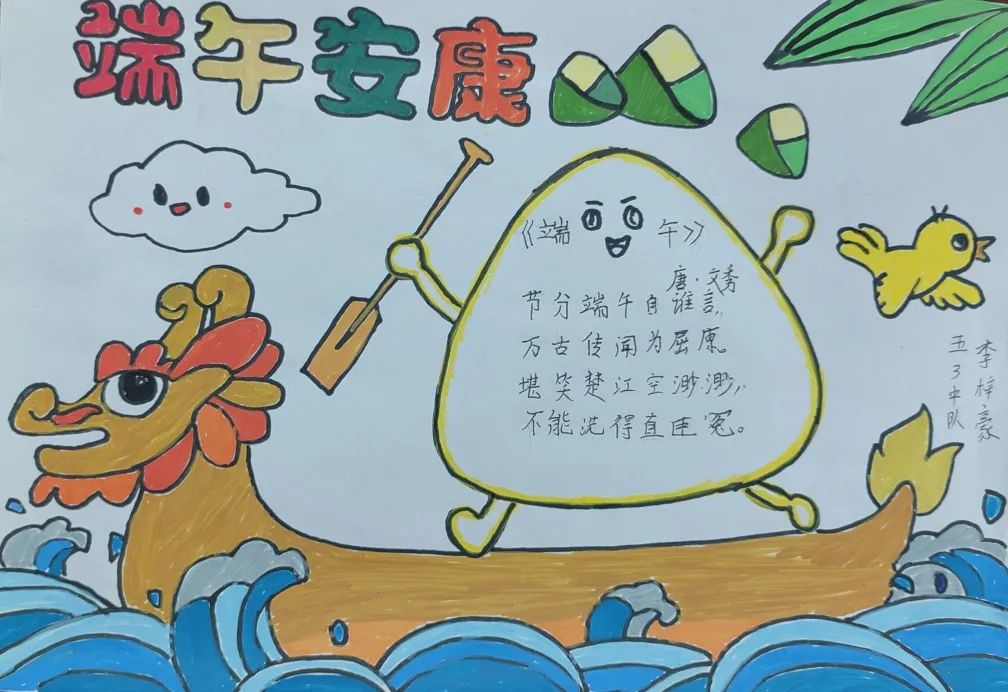 端午安康
《端午》
唐·文秀
节分端午自谁言,
万古传闻为屈原。
堪笑楚江空渺渺,
不能洗得直臣冤。
五3中队
李梓豪